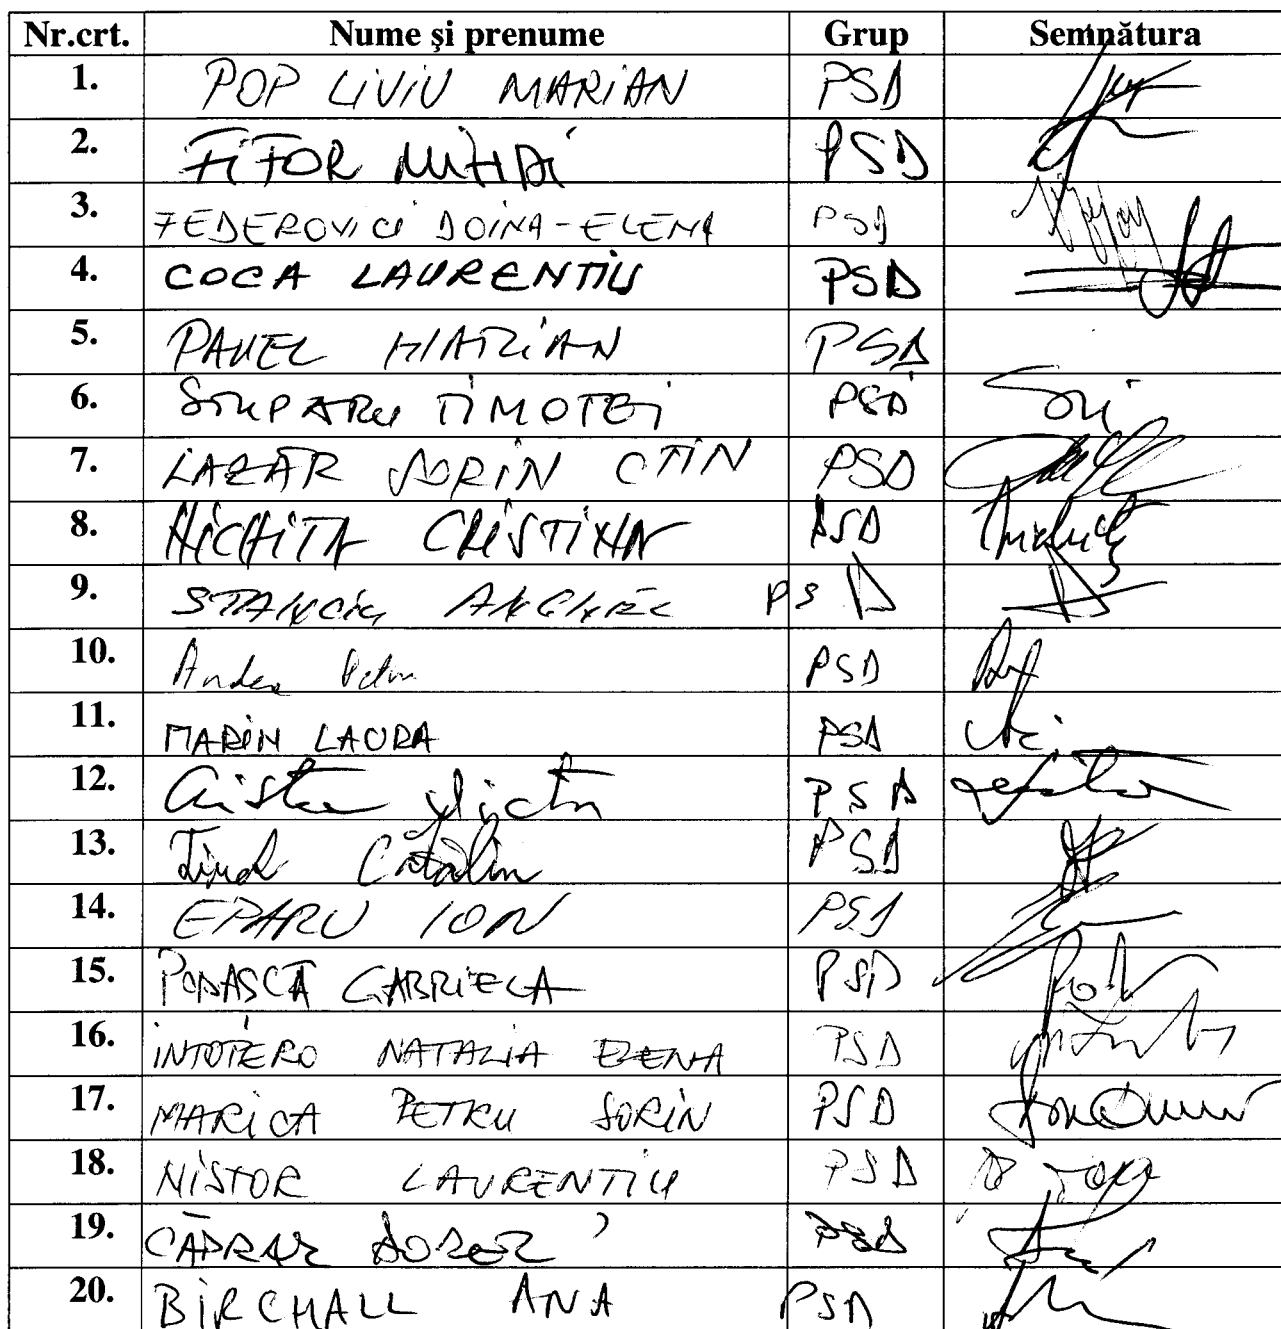 Nr.crt. Nume şi prenume Grup Semnătura
1. POP LIVIU MARIAN PSD
2. FIFOR MIHAI PSD
3. FEDEROVICI DOINA-ELENA PSD
4. COCA LAURENTIU PSD
5. PAVEL MARIAN PSD
6. STUPARU TIMOTEI PSD
7. LAZĂR SORIN CTIN PSD
8. NICHITA CRISTINA PSD
9. STANCIU ANGHEL PSD
10. Andea Petru PSD
11. MARIN LAURA PSD
12. Cristea Victor PSD
13. Tinel Cătălin PSD
14. EPARU ION PSD
15. PODAȘCĂ GABRIELA PSD
16. INTOTERO NATALIA ELENA PSD
17. MARICA PETRU SORIN PSD
18. NISTOR LAURENTIU PSD
19. CĂPRAR DOREL PSD
20. BIRCHALL ANA PSD